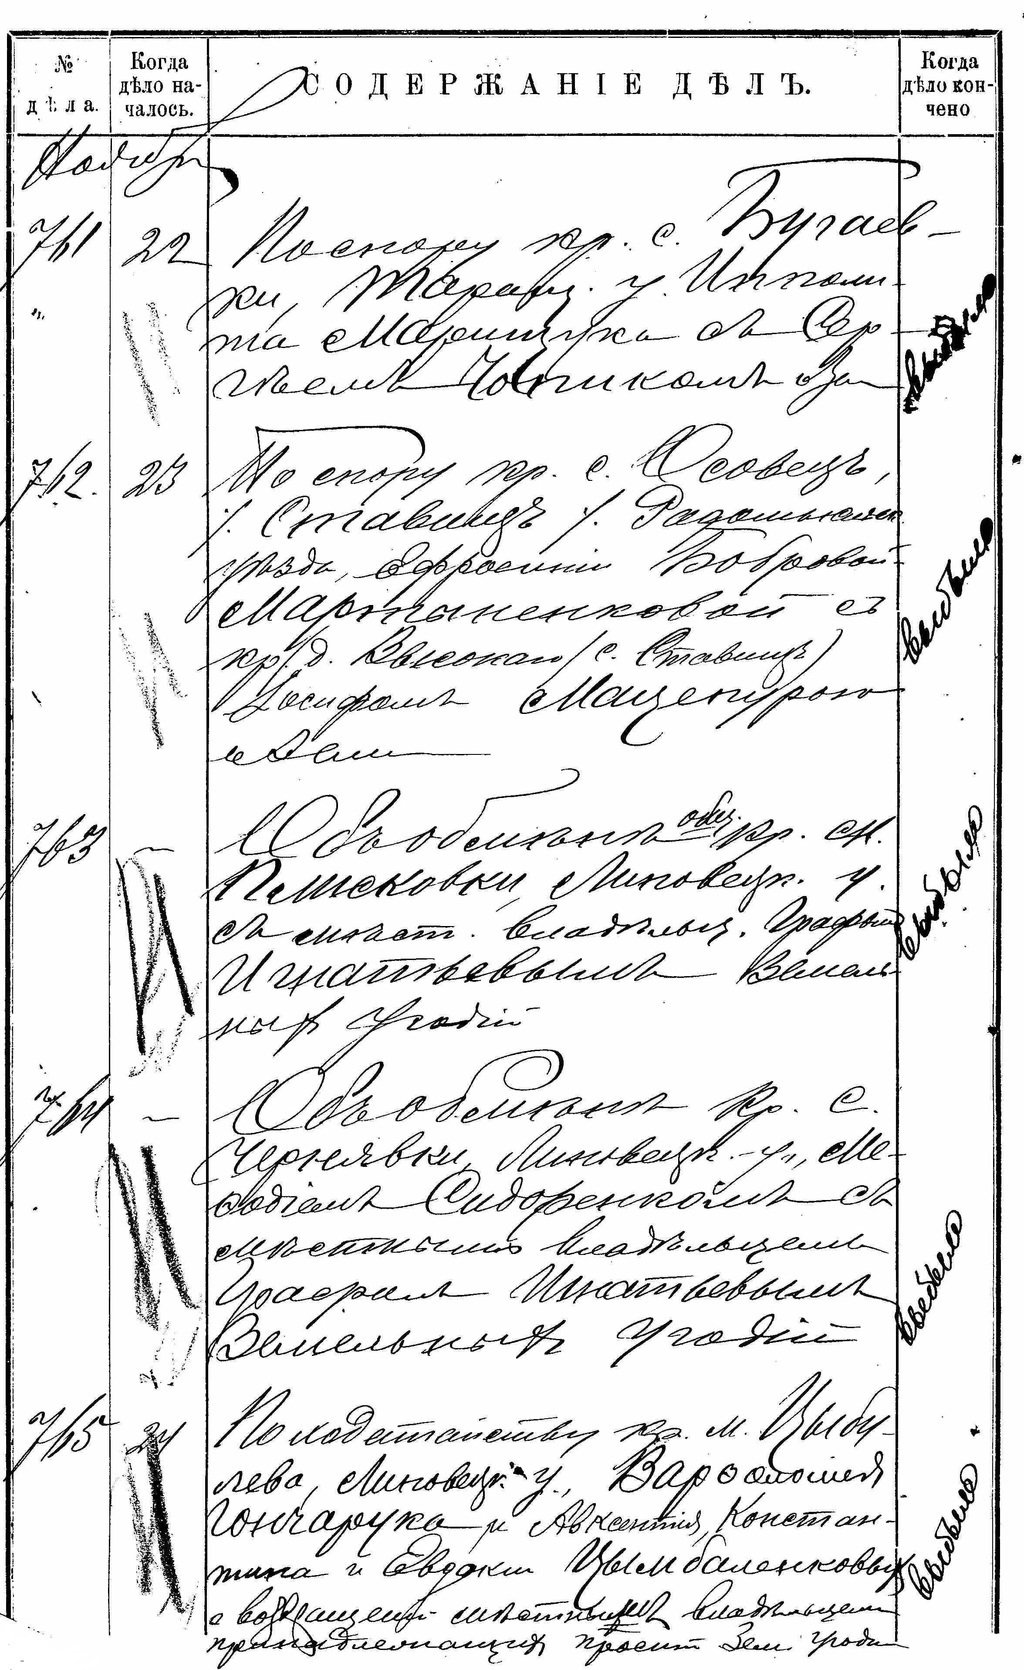 № дѣла.
Когда дѣло началось.
СОДЕРЖАНІЕ ДѢЛЪ.
Когда дѣло кончено
Ноябрь
761 22 По спору кр. с. Бугаев-
ки, Таращ. у. Иппали-
та Марищука съ Сер-
гѣемъ
выбыло
762. 23 По спору кр. с. Осовецъ,
Ставищъ Радомысльск
уѣзда, Ефросиніи Бобровой-
Мартыненковой съ
кр. д. Высокая (с. Ставищъ)
Іосифомъ Маценурою
о земли
выбыло
763 — Объ обмѣнѣ общ. кр. м.
Плисковки, Липовецк. у.
съ мѣст. владѣльц. Графомъ
Игнатьевымъ Земель-
ныхъ угодій
выбыло
764 — Объ обмѣнѣ кр. с.
Чернявки, Липовецк. у., Ме-
ѳодіемъ Сидоренкомъ съ
мѣстнымъ владѣльцемъ
Графомъ Игнатьевымъ
Земельныхъ угодій
выбыло
765 24 По ходатайству кр. м. Цыбу-
лева, Липовецк. у., Варѳоломея
Гончарука и Авксентія, Констан-
тина и Евдокіи Цымбаленковых
о возвращеніи мѣстнымъ владѣльцемъ
принадлежащих Зем. угоди
выбыло